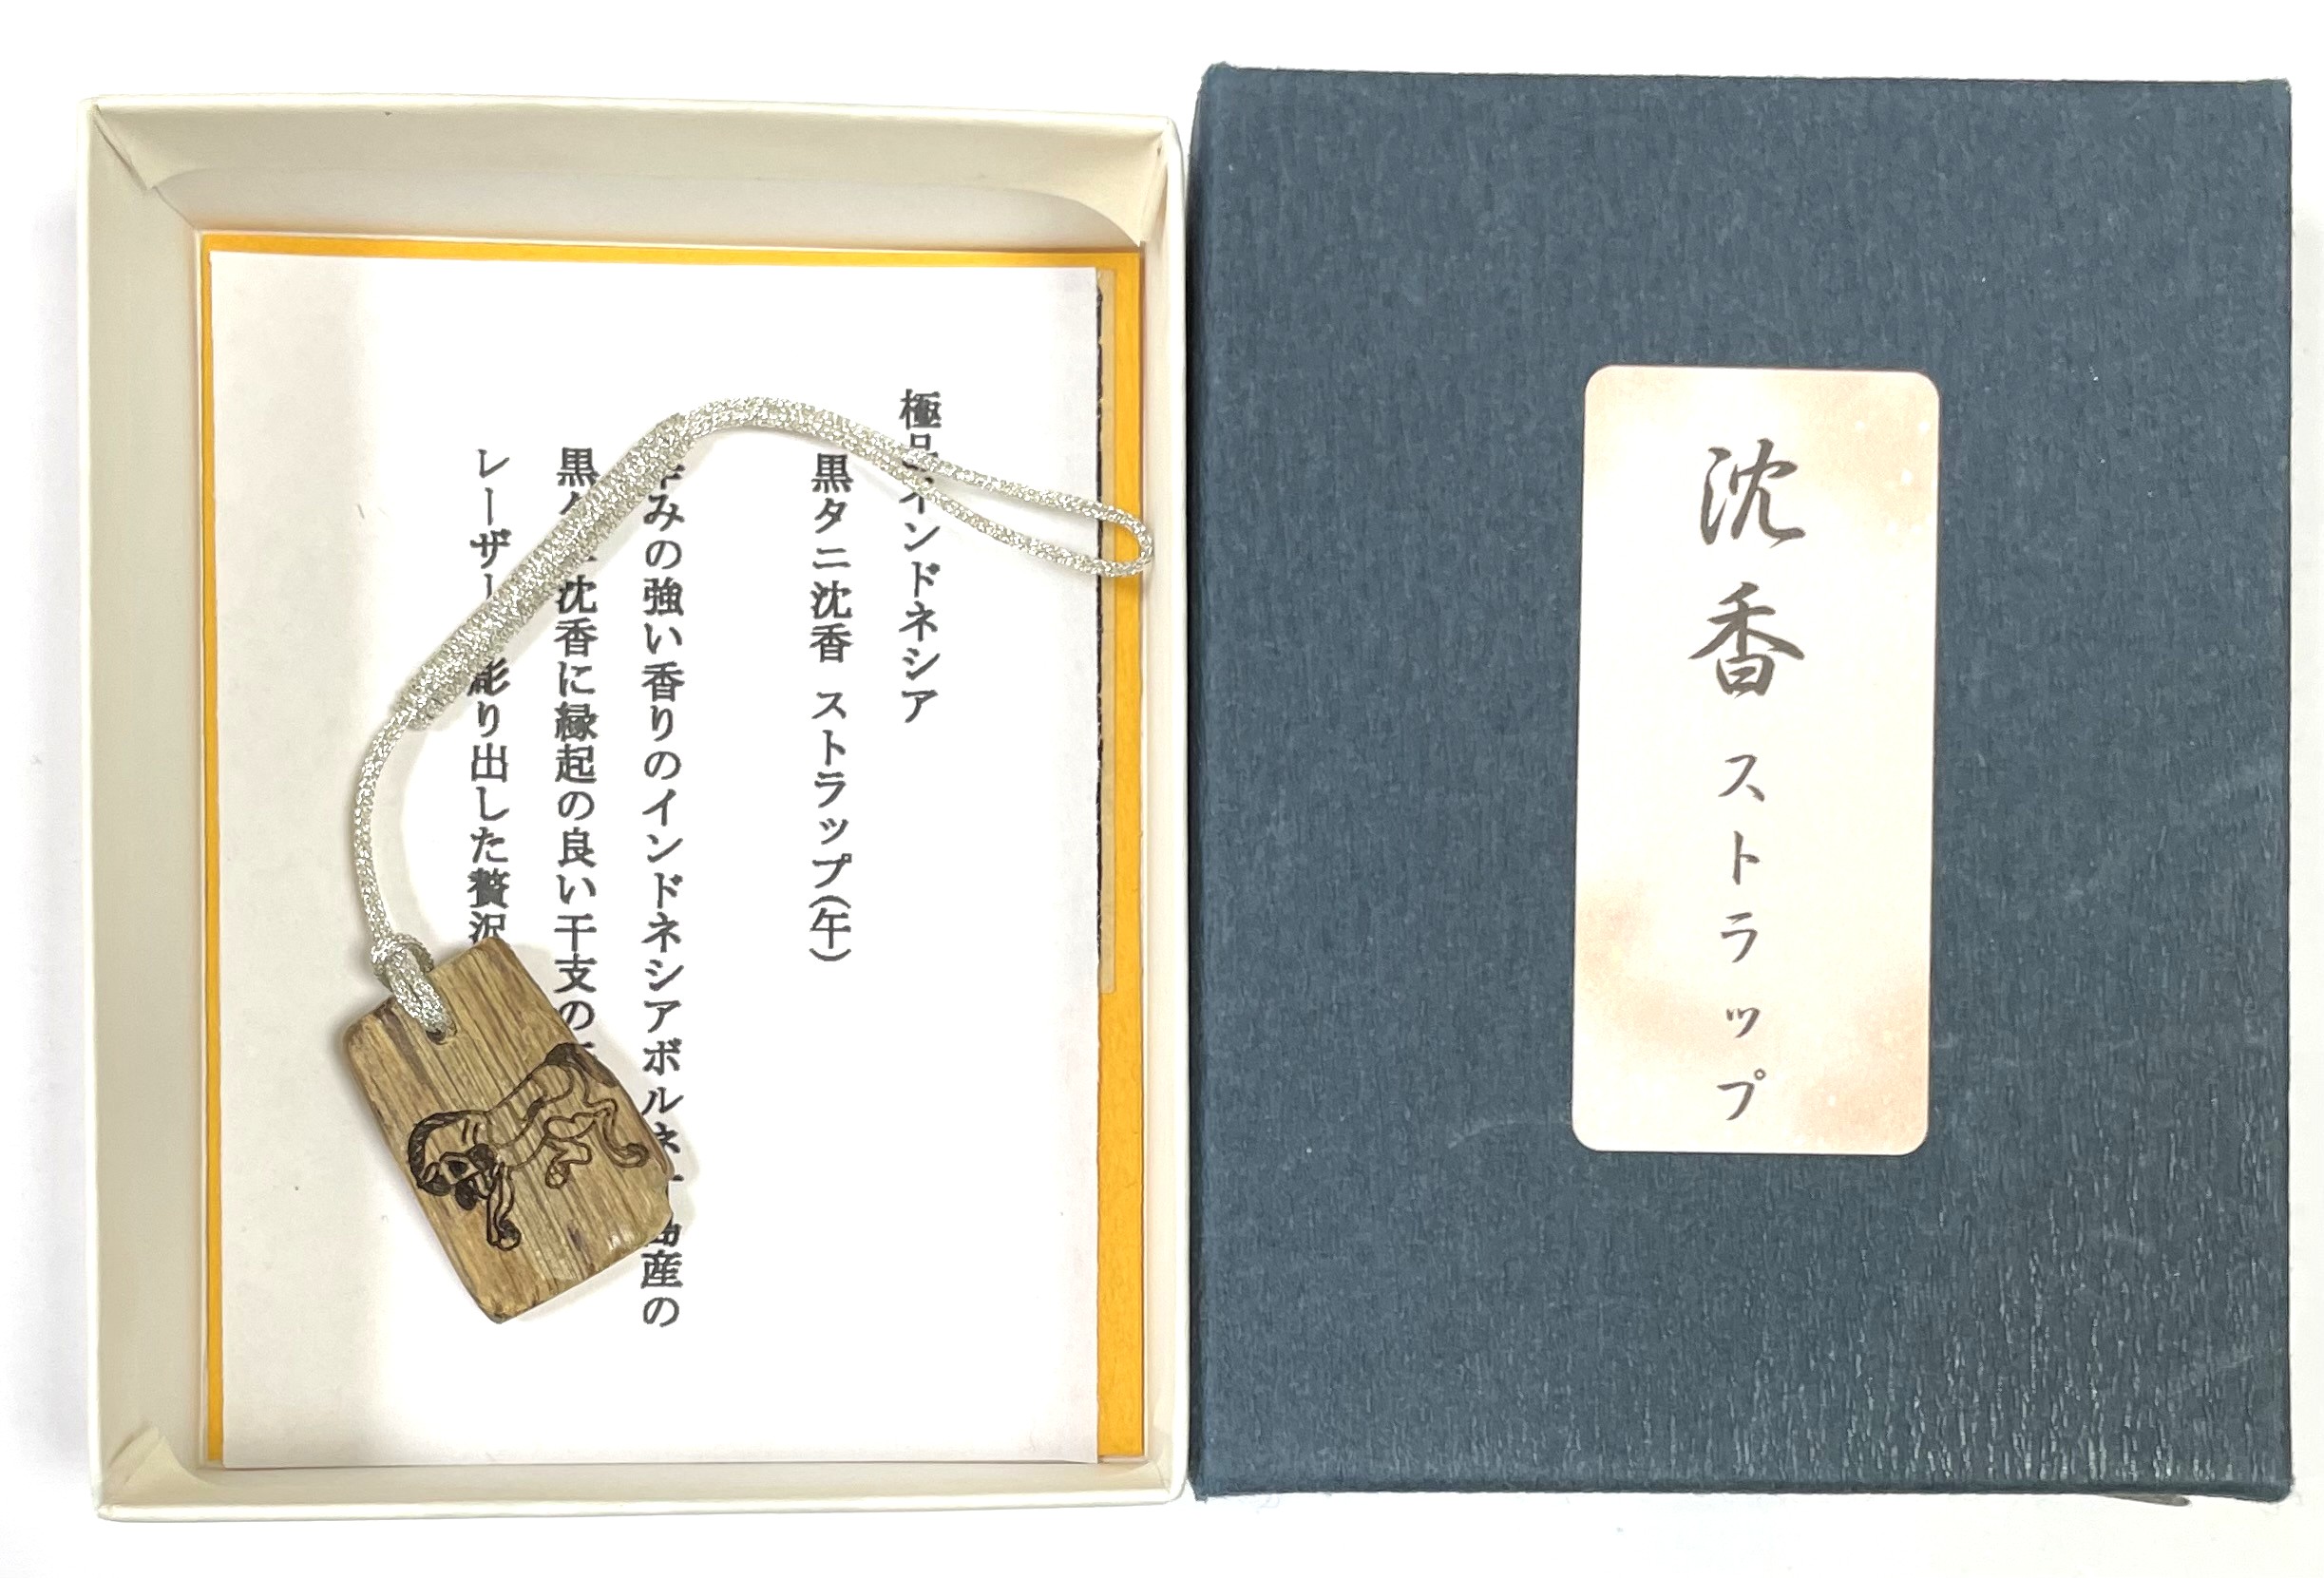 極品インドネシア
黒タニ沈香 ストラップ(午)
みの強い香りのインドネシアボルネ 産の
黒 沈香に縁起の良い干支の
レーザー彫り出した贅沢
沈香ストラップ